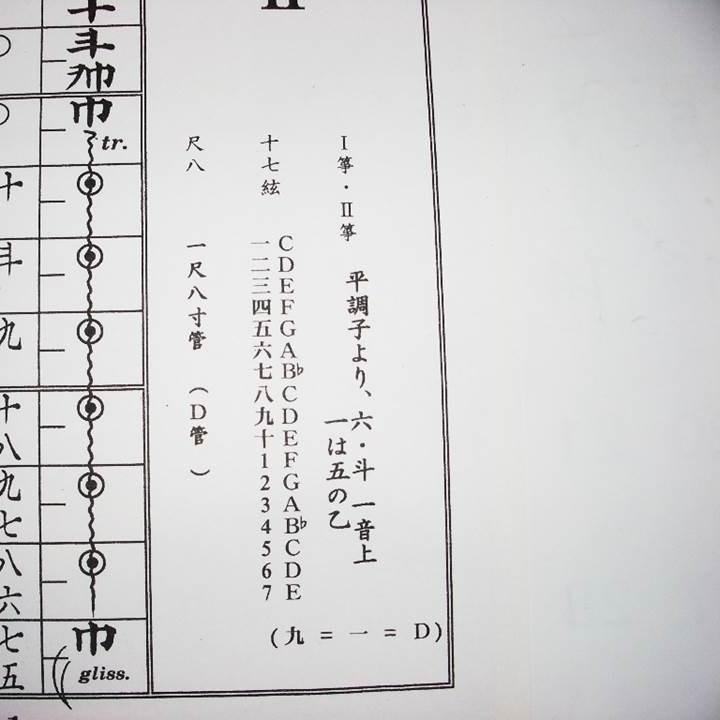 Ⅰ箏・Ⅱ箏 平調子より、六・斗 一音上
一は五の乙
(九 = 一 = D)
十七絃
C D E F G A B♭ C D E F G A B♭ C D E
一 二 三 四 五 六 七 八 九 十 1 2 3 4 5 6 7
尺八 一尺八寸管 (D管)
十
斗
巾
tr.
巾
gliss.
十
斗
九
十八
九七
八六
七五